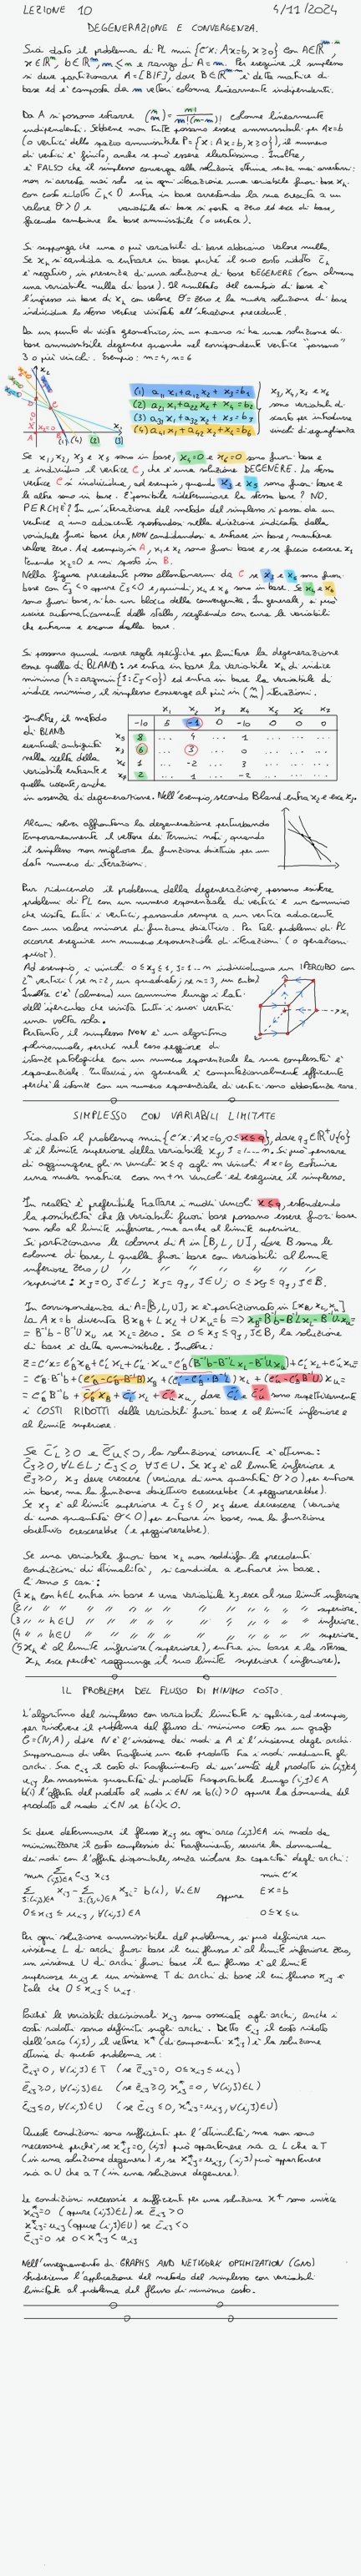 LEZIONE 10 4/11/2024
DEGENERAZIONE E CONVERGENZA.
Sia dato il problema di PL min {c'x: Ax=b, x≥0} con A∈ℝ^m·n,
x∈ℝ^n, b∈ℝ^m, m≤n e rango di A=m. Per eseguire il simplesso
si deve partizionare A=[B|F], dove B∈ℝ^m·m è detta matrice di
base ed è composta da m vettori colonna linearmente indipendenti.
Da A si possono estrarre (n m) = n!/m!(n-m)! colonne linearmente
indipendenti. Sebbene non tutte possano essere ammissibili per Ax=b
(o vertici dello spazio ammissibile P={x: Ax=b, x≥0}), il numero
di vertici è finito, anche se può essere elevatissimo. Inoltre,
è FALSO che il simplesso converga alla soluzione ottima senza mai arrestarsi:
non si arresta mai solo se in ogni iterazione una variabile fuori base x_h
con costo ridotto c̄_h<0 entra in base arrestando la sua crescita a un
valore θ>0 e variabile di base si porta a zero ed esce di base,
facendo cambiare la base ammissibile (o vertice).
Si supponga che una o più variabili di base abbiano valore nullo.
Se x_h si candida a entrare in base perché il suo costo ridotto c̄_h
è negativo, in presenza di una soluzione di base DEGENERE (con almeno
una variabile nulla di base). Il risultato del cambio di base è
l'ingresso in base di x_h con valore θ=zero e la nuova soluzione di base
individua lo stesso vertice visitato all'iterazione precedente.
Da un punto di vista geometrico, in un piano si ha una soluzione di
base ammissibile degenere quando nel corrispondente vertice "passano"
3 o più vincoli. Esempio: m=4, n=6
(1) a11 x1+a12 x2+x3=b1
(2) a21 x1+a22 x2+x4=b2
(3) a31 x1+a32 x2+x5=b3
(4) a41 x1+a42 x2+x6=b4
x3, x4, x5 e x6
sono variabili di
scarto per introdurre
vincoli di eguaglianza
(1) (4) (2) (3)
Se x1, x2, x3 e x5 sono in base, x4=0 e x6=0 sono fuori base e
e individuo il vertice C, che è una soluzione DEGENERE. Lo stesso
vertice C si individua, ad esempio, quando x3 e x5 sono fuori base e
le altre sono in base. È possibile rideterminare la stessa base? NO.
PERCHÉ? In un'iterazione del metodo del simplesso si passa da un
vertice a uno adiacente spostandosi nella direzione indicata dalla
variabile fuori base che, NON candidandosi a entrare in base, mantiene
valore zero. Ad esempio in A, x1 e x2 sono fuori base e, se faccio crescere x1
tenendo x2=0 e mi sposto in B.
Nella figura precedente posso allontanarmi da C se x3 e x5 sono fuori
base con c̄3<0 oppure c̄5<0 e, quindi, x4 e x6 sono in base. Se x4 e x6
sono fuori base, si ha un blocco della convergenza. In generale, si può
uscire automaticamente dallo stallo, scegliendo con cura le variabili
che entrano e escono dalla base.
Si possono quindi usare regole specifiche per limitare la degenerazione
come quella di BLAND: se entra in base la variabile x_h di indice
minimo (h=argmin{j: c̄_j<0}) ed esce in base la variabile di
indice minimo, il simplesso converge al più in (n m) iterazioni.
Inoltre, il metodo
di BLAND
eventuali ambiguità
nella scelta della
variabile entrante e
quella uscente, anche
x1 x2 x3 x4 x5 x6 x7
-10 5 -1 0 -10 0 0 0
x5 8 ... 4 1 ...
x3 6 ... 3 0 ...
x6 1 ... -2 3 ...
x7 2 ... 1 -2 ...
in assenza di degenerazione. Nell'esempio, secondo Bland entra x2 e esce x3.
Alcuni solver affrontano la degenerazione perturbando
temporaneamente il vettore dei termini noti, quando
il simplesso non migliora la funzione obiettivo per un
dato numero di iterazioni.
Pur riducendo il problema della degenerazione, possono esistere
problemi di PL con un numero esponenziale di vertici e un cammino
che visita tutti i vertici, passando sempre a un vertice adiacente
con un valore minore di funzione obiettivo. Per tali problemi di PL
occorre eseguire un numero esponenziale di iterazioni (o operazioni
pivot).
Ad esempio, i vincoli 0≤x_j≤1, j=1...n individuano un IPERCUBO con
2^n vertici (se n=2, un quadrato; se n=3, un cubo)
Inoltre c'è (almeno) un cammino lungo i lati
dell'ipercubo che visita tutti i suoi vertici
una volta sola.
Pertanto, il simplesso NON è un algoritmo
polinomiale, perché nel caso peggiore di
istanze patologiche con un numero esponenziale la sua complessità è
esponenziale. Tuttavia, in generale è computazionalmente efficiente
perché le istanze con un numero esponenziale di vertici sono abbastanza rare.
SIMPLESSO CON VARIABILI LIMITATE
Sia dato il problema min{c'x: Ax=b, 0≤x≤q}, dove q_j∈ℝ⁺∪{0}
è il limite superiore della variabile x_j, j=1...n. Si può pensare
di aggiungere gli n vincoli x≤q agli m vincoli Ax=b, costruire
una nuova matrice con m+n vincoli ed eseguire il simplesso.
In realtà è preferibile trattare i nuovi vincoli x≤q, estendendo
la possibilità che le variabili fuori base possano essere fuori base
non solo al limite inferiore, ma anche al limite superiore.
Si partizionano le colonne di A in [B, L, U], dove B sono le
colonne di base, L quelle fuori base con variabili al limite
inferiore zero, U " " " " " "
superiore: x_j=0, j∈L; x_j=q_j, j∈U; 0≤x_j≤q_j, j∈B.
In corrispondenza di A=[B,L,U], x è partizionato in [x_B, x_L, x_U]
La Ax=b diventa Bx_B+Lx_L+Ux_U=b => x_B=B⁻¹b-B⁻¹Lx_L-B⁻¹Ux_U=
=B⁻¹b-B⁻¹Ux_U se x_L=zero. Se 0≤x_j≤q_j, j∈B, la soluzione
di base è detta ammissibile. Inoltre:
z=c'x=c'_B x_B+c'_L x_L+c'_U x_U=c'_B(B⁻¹b-B⁻¹Lx_L-B⁻¹Ux_U)+c'_L x_L+c'_U x_U=
=c'_B B⁻¹b+(c'_B-c'_B B⁻¹B)x_B+(c'_L-c'_B B⁻¹L)x_L+(c'_U-c'_B B⁻¹U)x_U=
=c'_B B⁻¹b+c̄'_B x_B+c̄'_L x_L+c̄'_U x_U, dove c̄'_L e c̄'_U sono rispettivamente
i COSTI RIDOTTI delle variabili fuori base e al limite inferiore e
al limite superiore.
Se c̄'_L≥0 e c̄'_U≤0, la soluzione corrente è ottima:
c̄_j≥0, ∀j∈L e c̄_j≤0, ∀j∈U. Se x_j è al limite inferiore e
c̄_j≥0, x_j deve crescere (variare di una quantità θ>0) per entrare
in base, ma la funzione obiettivo crescerebbe (e peggiorerebbe).
Se x_j è al limite superiore e c̄_j≤0, x_j deve decrescere (variare
di una quantità θ<0) per entrare in base, ma la funzione
obiettivo crescerebbe (e peggiorerebbe).
Se una variabile fuori base x_h non soddisfa le precedenti
condizioni di ottimalità, si candida a entrare in base.
Ci sono 5 casi:
(1 x_h con h∈L entra in base e una variabile x_j esce al suo limite inferiore.
(2 " " " " " " " " " " " superiore.
(3 " " h∈U " " " " " " " " inferiore.
(4 " " h∈U " " " " " " " " superiore.
(5 x_h è al limite inferiore (superiore), entra in base e la stessa
x_h esce perché raggiunge il suo limite superiore (inferiore).
IL PROBLEMA DEL FLUSSO DI MINIMO COSTO.
L'algoritmo del simplesso con variabili limitate si applica, ad esempio,
per risolvere il problema del flusso di minimo costo su un grafo
G=(N,A), dove N è l'insieme dei nodi e A è l'insieme degli archi.
Supponiamo di voler trasferire un certo prodotto fra i nodi mediante gli
archi. Sia c_ij il costo di trasferimento di un'unità del prodotto in (i,j)∈A,
u_ij la massima quantità di prodotto trasportabile lungo (i,j)∈A
b(i) l'offerta del prodotto al nodo i∈N se b(i)>0 oppure la domanda del
prodotto al nodo i∈N se b(i)<0.
Si deve determinare il flusso x_ij su ogni arco (i,j)∈A in modo da
minimizzare il costo complessivo di trasferimento, servire la domanda
dei nodi con l'offerta disponibile, senza violare la capacità degli archi:
min Σ_(i,j)∈A c_ij x_ij min c'x
Σ_j:(i,j)∈A x_ij - Σ_j:(j,i)∈A x_ji = b(i), ∀i∈N oppure Ex=b
0≤x_ij≤u_ij, ∀(i,j)∈A 0≤x≤u
Per ogni soluzione ammissibile del problema, si può definire un
insieme L di archi fuori base il cui flusso è al limite inferiore zero,
un insieme U di archi fuori base il cui flusso è al limite
superiore u_ij e un insieme T di archi di base il cui flusso x_ij è
tale che 0≤x_ij≤u_ij.
Poiché le variabili decisionali x_ij sono associate agli archi, anche i
costi ridotti sono definiti sugli archi. Detto c̄_ij il costo ridotto
dell'arco (i,j), il vettore x* (di componenti x*_ij) è la soluzione
ottima di questo problema se:
c̄_ij=0, ∀(i,j)∈T (se c̄_ij=0, 0≤x_ij≤u_ij)
c̄_ij≥0, ∀(i,j)∈L (se c̄_ij≥0, x*_ij=0, ∀(i,j)∈L)
c̄_ij≤0, ∀(i,j)∈U (se c̄_ij≤0, x*_ij=u_ij, ∀(i,j)∈U)
Queste condizioni sono sufficienti per l'ottimalità, ma non sono
necessarie perché, se x*_ij=0, (i,j) può appartenere sia a L che a T
(in una soluzione degenere) e, se x*_ij=u_ij, (i,j) può appartenere
sia a U che a T (in una soluzione degenere).
Le condizioni necessarie e sufficienti per una soluzione x* sono invece
x*_ij=0 (oppure (i,j)∈L) se c̄_ij>0
x*_ij=u_ij (oppure (i,j)∈U) se c̄_ij<0
c̄_ij=0 se 0<x*_ij<u_ij
Nell'insegnamento di GRAPHS AND NETWORK OPTIMIZATION (GNO)
studieremo l'applicazione del metodo del simplesso con variabili
limitate al problema del flusso di minimo costo.